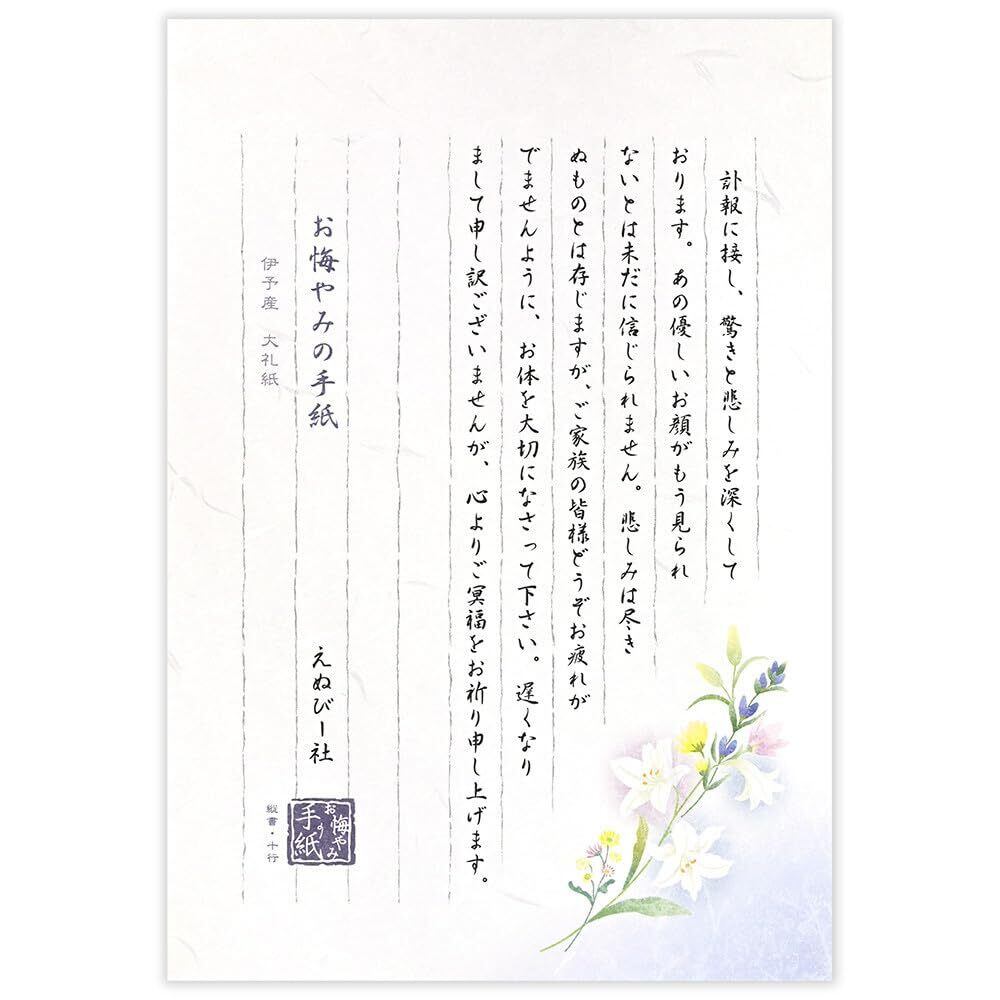 訃報に接し、驚きと悲しみを深くして
おります。あの優しいお顔がもう見られ
ないとは未だに信じられません。悲しみは尽き
ぬものとは存じますが、ご家族の皆様どうぞお疲れが
でませんように、お体を大切になさって下さい。遅くなり
まして申し訳ございませんが、心よりご冥福をお祈り申し上げます。
お悔やみの手紙
えぬびー社
伊予産 大礼紙
お悔やみ
の手紙
縦書・十行